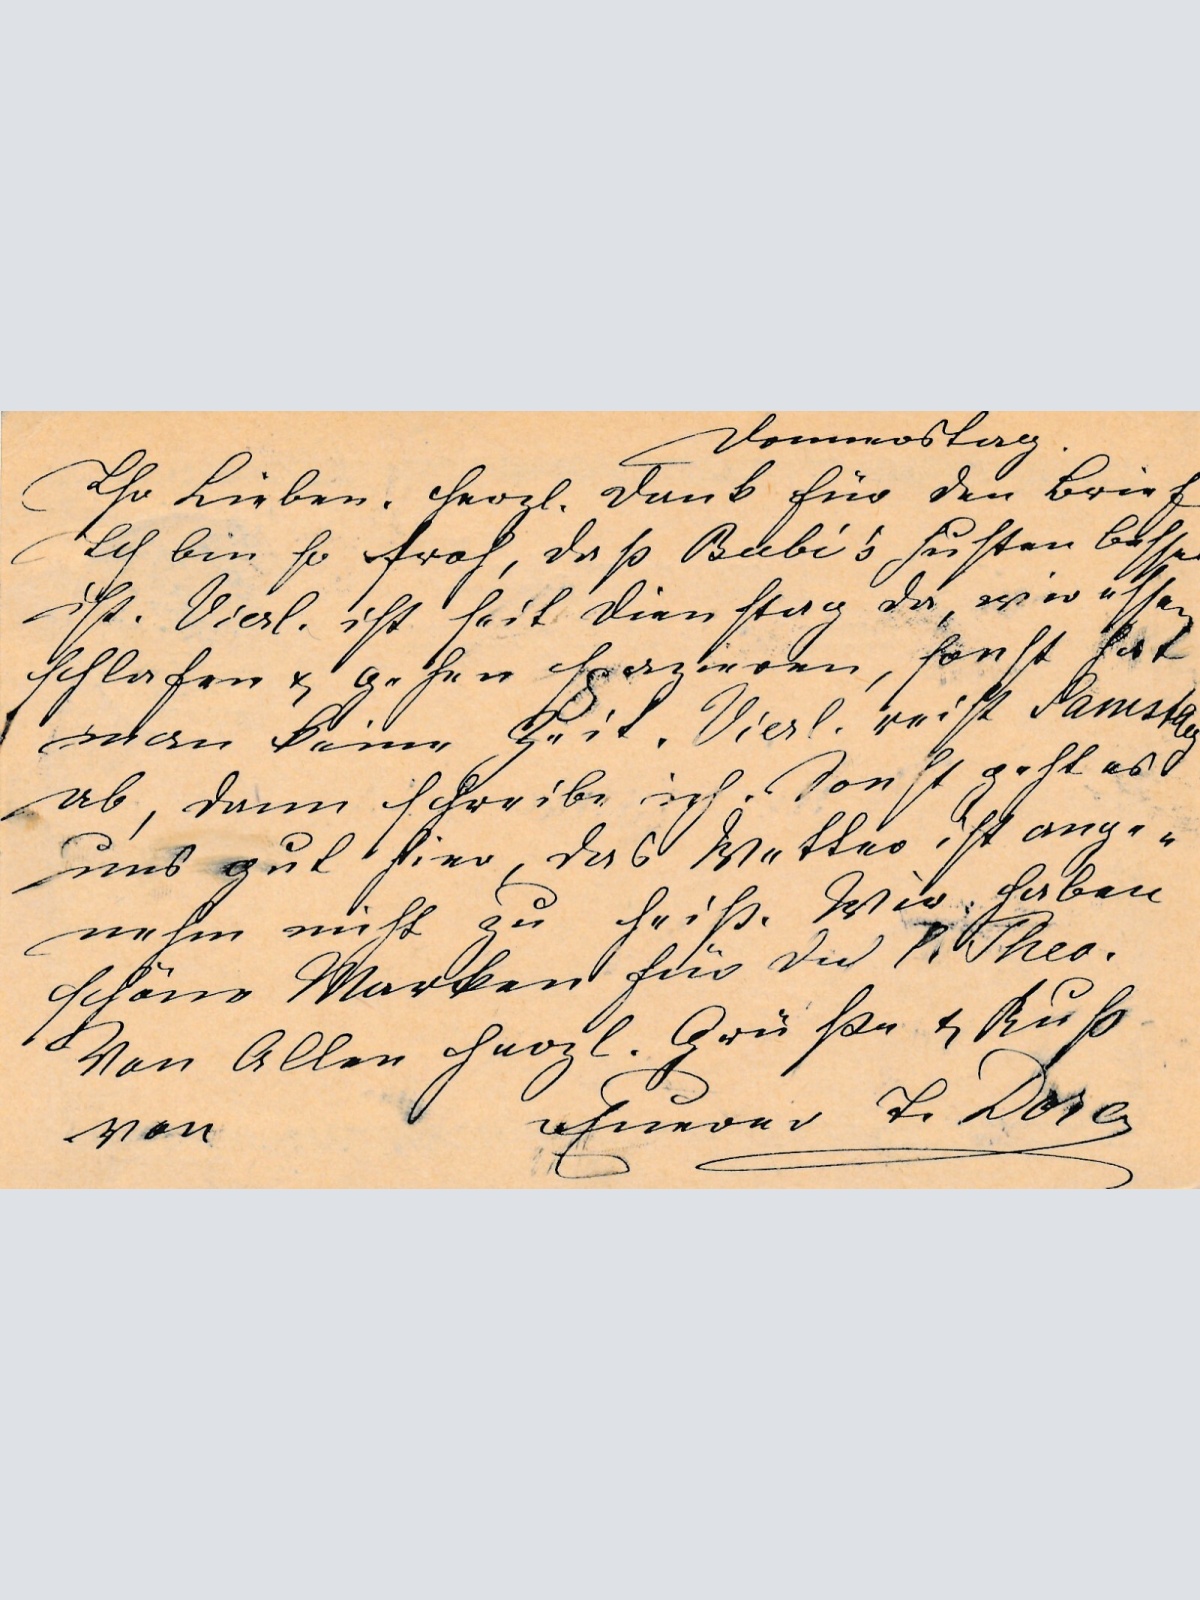 Donnerstag.
Ihr Lieben. Herzl. Dank für den Brief
Ich bin so froh, daß Bubi's Husten besser
ist. Vierl. ist seit Dienstag da, wir essen
schlafen & gehen spazieren, sonst hat
man keine Zeit. Vierl. reist Samstag
ab, dann schreibe ich. Sonst geht es
uns gut hier, das Wetter ist ange=
nehm nicht zu heiß. Wir haben
schöne Marken für die Theo.
Von Allen herzl. Grüße & Kuß
von Eurer Dora